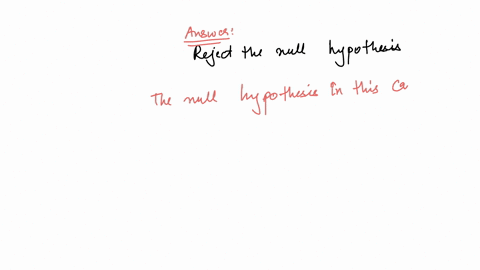 Answer:
Reject the null hypothesis
The null hypothesis in this Ca